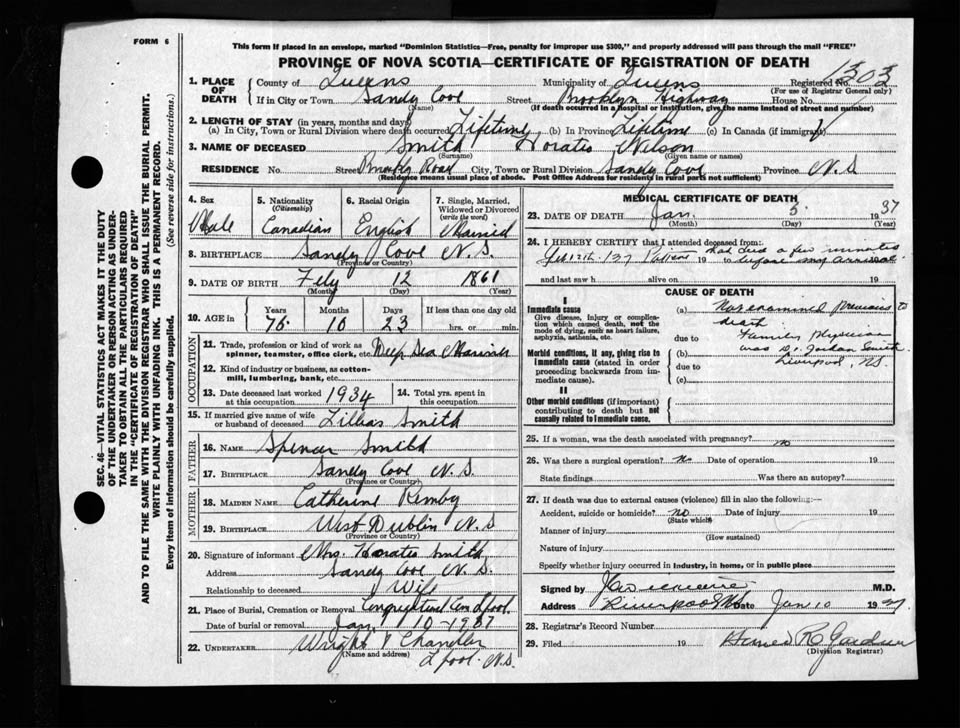 FORM 6
This form if placed in an envelope, marked "Dominion Statistics—Free, penalty for improper use $300," and properly addressed will pass through the mail "FREE"
PROVINCE OF NOVA SCOTIA—CERTIFICATE OF REGISTRATION OF DEATH
1. PLACE OF DEATH
County of Queens Municipality of Queens Registered No. 1303
(For use of Registrar General only)
If in City or Town Sandy Cove Street Brooklyn Highway House No.
(Name) (If death occurred in a hospital or institution, give the name instead of street and number)
2. LENGTH OF STAY (in years, months and days)
(a) In City, Town or Rural Division where death occurred Lifetime (b) In Province Lifetime (c) In Canada (if immigrant)
3. NAME OF DECEASED Smith Horatio Nelson
(Surname) (Given name or names)
RESIDENCE No. Street Road City, Town or Rural Division Sandy Cove Province N.S
(Residence means usual place of abode. Post Office Address for residents in rural parts not sufficient)
4. Sex Male
5. Nationality (Citizenship) Canadian
6. Racial Origin English
7. Single, Married, Widowed or Divorced (write the word) Married
8. BIRTHPLACE Sandy Cove N.S.
(Province or Country)
9. DATE OF BIRTH Feby 12 1861
(Month) (Day) (Year)
10. AGE in Years Months Days If less than one day old
76 10 23 hrs. or min.
OCCUPATION
11. Trade, profession or kind of work as spinner, teamster, office clerk, etc. Deep Sea Mariner
12. Kind of industry or business, as cotton-mill, lumbering, bank, etc.
13. Date deceased last worked at this occupation 1934
14. Total yrs. spent in this occupation
15. If married give name of wife or husband of deceased Lillias Smith
FATHER
16. NAME Spencer Smith
17. BIRTHPLACE Sandy Cove N.S.
(Province or Country)
MOTHER
18. MAIDEN NAME Catherine Remby
19. BIRTHPLACE West Dublin N.S
(Province or Country)
20. Signature of informant Mrs. Horatio Smith
Address Sandy Cove N.S.
Relationship to deceased Wife
21. Place of Burial, Cremation or Removal Cem. L'pool.
Date of burial or removal Jan. 10 - 1937
22. UNDERTAKER Wright & Chandler
(Name and address) L'pool. N.S.
MEDICAL CERTIFICATE OF DEATH
23. DATE OF DEATH Jan. 5 1937
(Month) (Day)
24. I HEREBY CERTIFY that I attended deceased from:
Patient had died a few minutes
19 to before my arrival 19
and last saw h alive on 19
CAUSE OF DEATH
I
Immediate cause
Give disease, injury or complication which caused death, not the mode of dying, such as heart failure, asphyxia, asthenia, etc.
(a) Not examined previous to death
due to Family Physician
Morbid conditions, if any, giving rise to immediate cause (stated in order proceeding backwards from immediate cause).
(b) was Dr. Smith
due to Liverpool, N.S.
(c)
II
Other morbid conditions (if important) contributing to death but not causally related to immediate cause.
25. If a woman, was the death associated with pregnancy? no
26. Was there a surgical operation? No Date of operation 19
State findings Was there an autopsy?
27. If death was due to external causes (violence) fill in also the following:—
Accident, suicide or homicide? no Date of injury 19
(State which)
Manner of injury
(How sustained)
Nature of injury
Specify whether injury occurred in industry, in home, or in public place
Signed by M.D.
Address Liverpool N.S Date Jan 10 1937
28. Registrar's Record Number
29. Filed 19
(Division Registrar)
SEC. 46—VITAL STATISTICS ACT MAKES IT THE DUTY
OF THE UNDERTAKER OR PERSON ACTING AS UNDER-
TAKER TO OBTAIN ALL THE PARTICULARS REQUIRED
IN THE "CERTIFICATE OF REGISTRATION OF DEATH"
AND TO FILE THE SAME WITH THE DIVISION REGISTRAR WHO SHALL ISSUE THE BURIAL PERMIT.
WRITE PLAINLY WITH UNFADING INK. THIS IS A PERMANENT RECORD.
Every item of information should be carefully supplied. (See reverse side for instructions.)